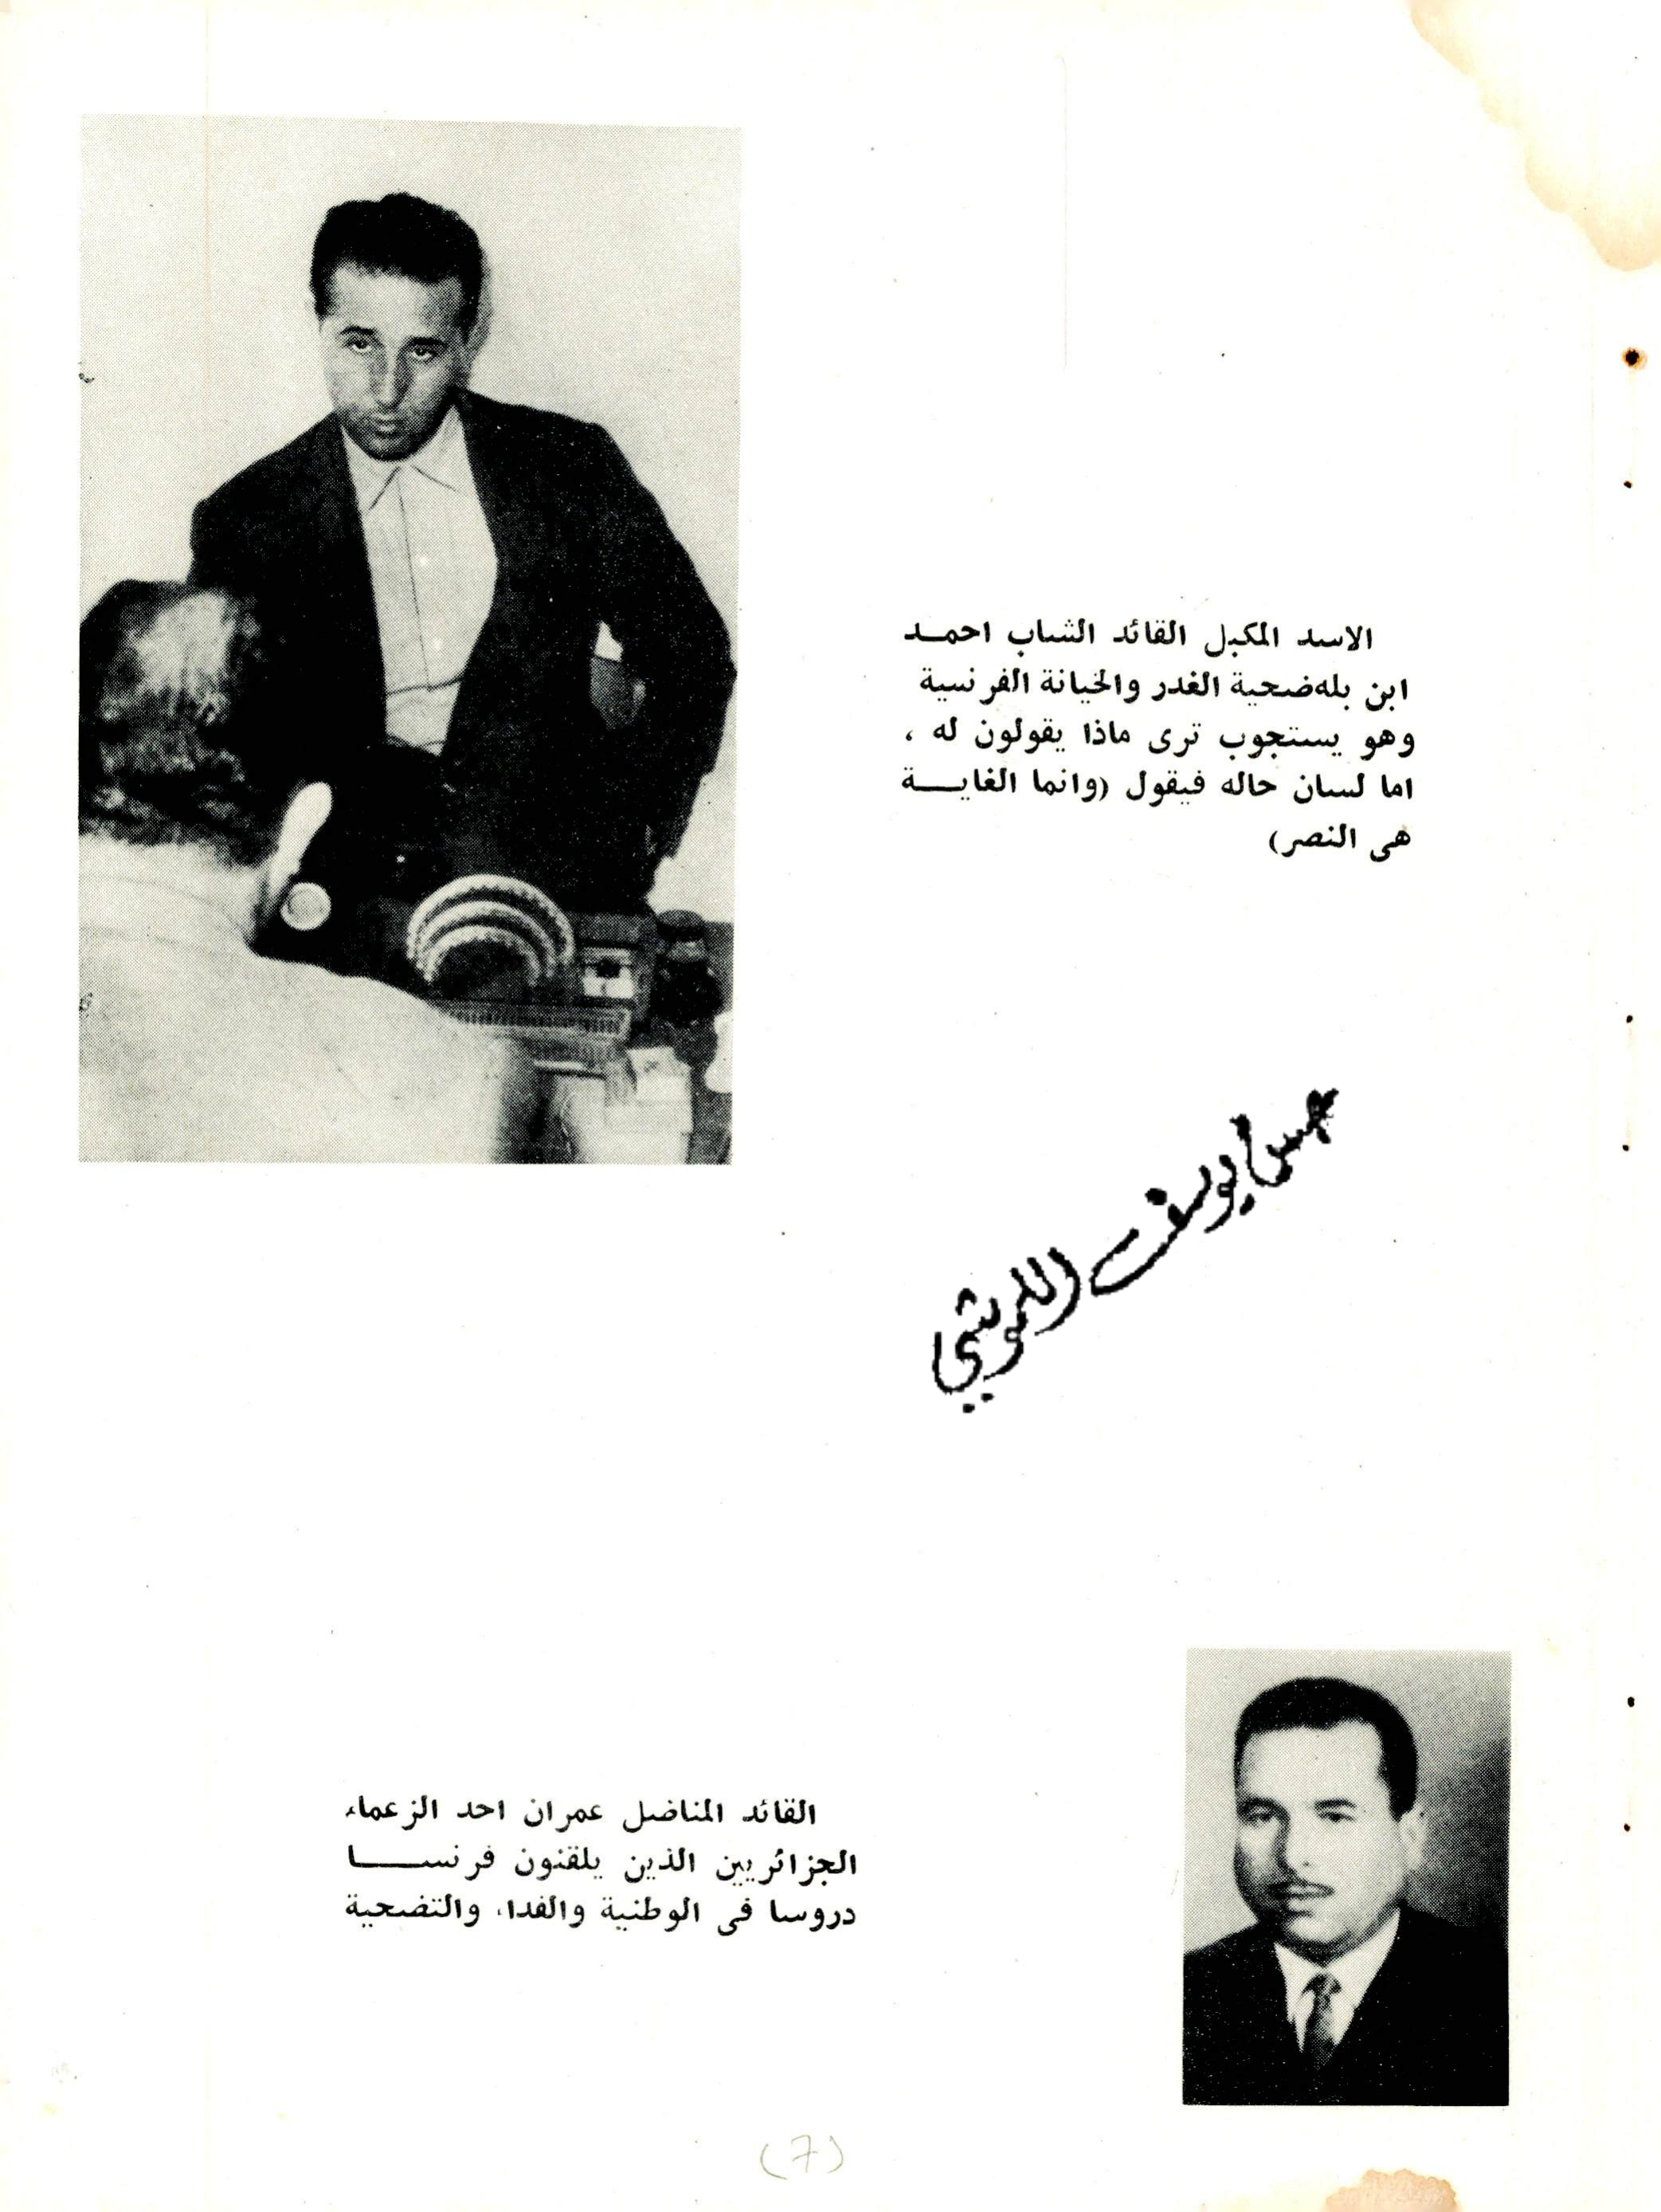 الاسد المكبل القائد الشاب احمـد
ابن بله ضحية الغدر والخيانة الفرنسية
وهو يستجوب ترى ماذا يقولون له ،
اما لسان حاله فيقول (وانما الغايـــة
هى النصر)
حسن يوسف
القائد المناضل عمران احد الزعماء
الجزائريين الذين يلقنون فرنســـا
دروسا فى الوطنية والفداء والتضحية
(7)